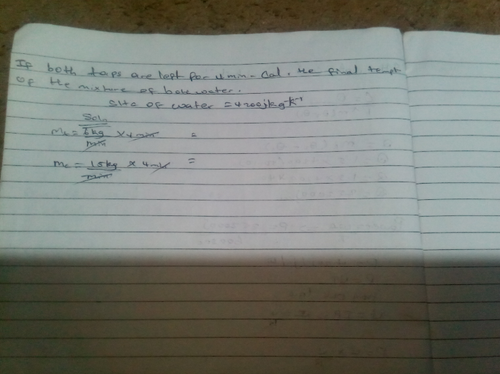 If both taps are left for 4 min. Cal. the final tempt
of the mixture of both water.
SHC of water = 4200jkg⁻¹k⁻¹
Soln
mₕ = kg/min × 4 min =
mc = 15kg/min × 4 min =